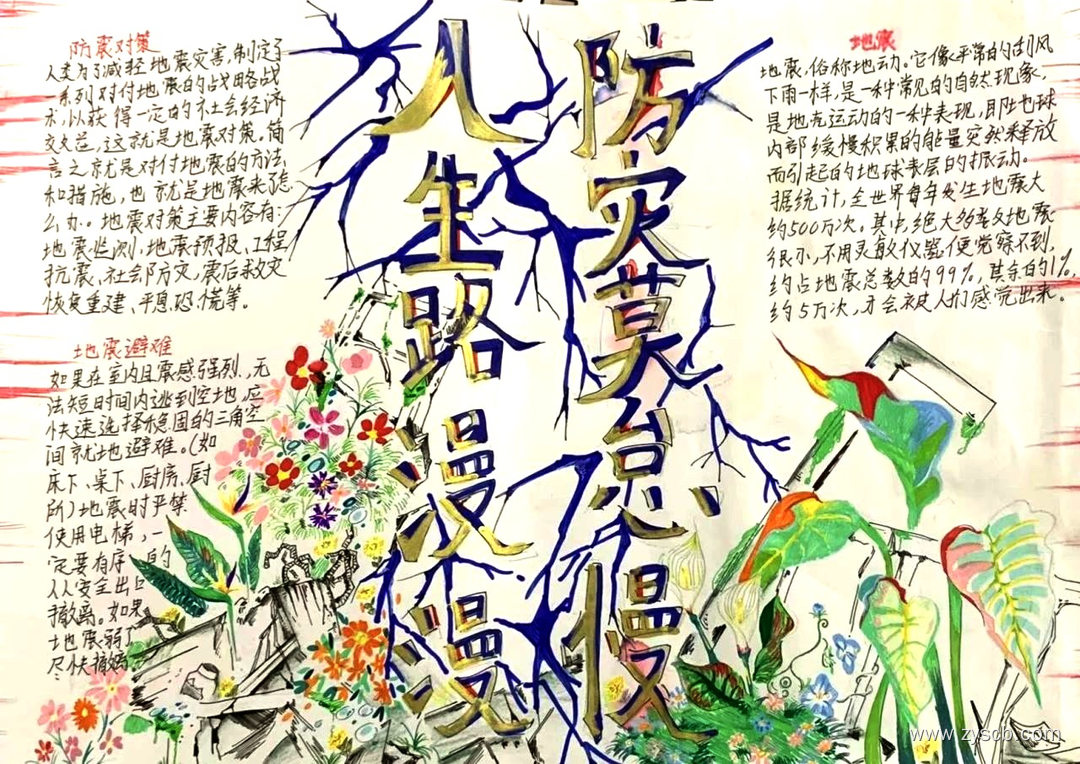 防震对策
人类为了减轻地震灾害,制定了
一系列对付地震的战略战
术,以获得一定的社会经济
效益,这就是地震对策。简
言之就是对付地震的方法
和措施,也就是地震来了怎
么办。地震对策主要内容有:
地震监测,地震预报、工程
抗震、社会防灾、震后救灾
恢复重建、平息恐慌等。
地震避难
如果在室内且震感强烈,无
法短时间内逃到空地,应
快速选择稳固的三角空
间就地避难。(如
床下、桌下、厨房、厕
所)地震时严禁
使用电梯,一
定要有序的
从安全出口
撤离。如果
地震弱了
尽快撤离
人生路漫漫
防灾莫怠慢
地震
地震,俗称地动。它像平常的刮风
下雨一样,是一种常见的自然现象,
是地壳运动的一种表现,即地球
内部缓慢积累的能量突然释放
而引起的地球表层的振动。
据统计,全世界每年发生地震大
约500万次。其中,绝大多数地震
很小,不用灵敏仪器便觉察不到,
约占地震总数的99%,其余的1%,
约5万次,才会被人们感觉出来。
www.zyscb.com